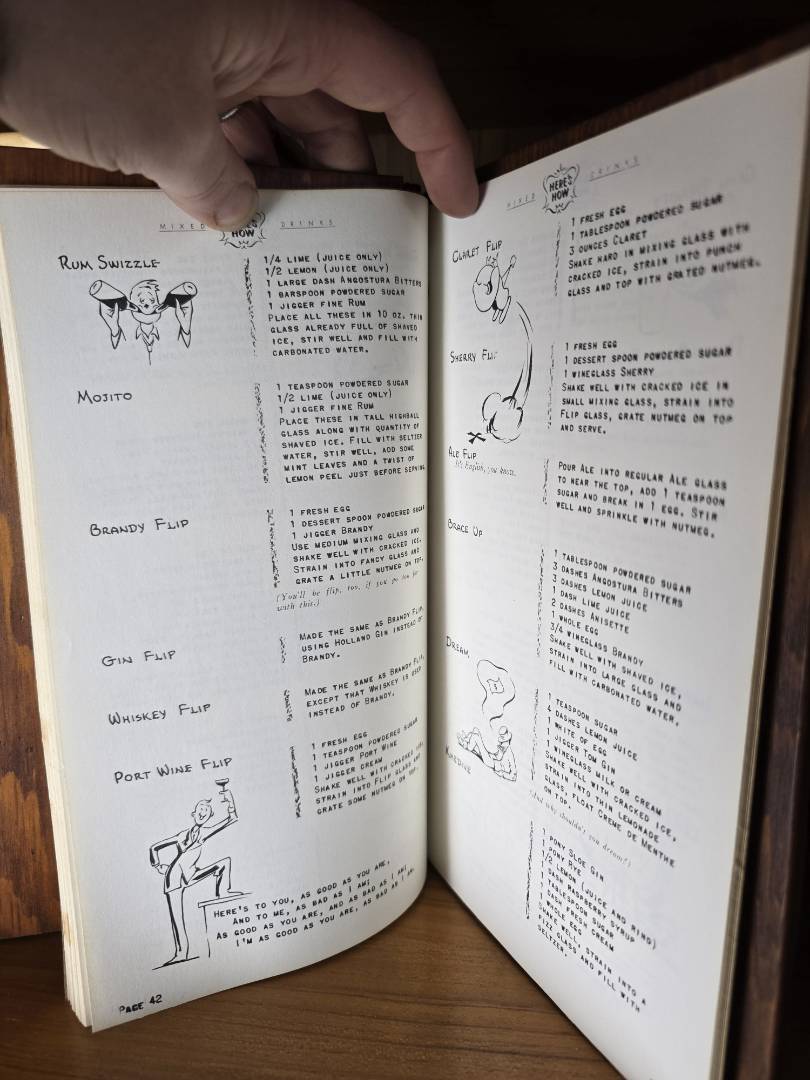 MIXED DRINKS
HERE'S HOW
RUM SWIZZLE
1/4 LIME (JUICE ONLY)
1/2 LEMON (JUICE ONLY)
1 LARGE DASH ANGOSTURA BITTERS
1 BARSPOON POWDERED SUGAR
1 JIGGER FINE RUM
PLACE ALL THESE IN 10 OZ. THIN
GLASS ALREADY FULL OF SHAVED
ICE, STIR WELL AND FILL WITH
CARBONATED WATER.
MOJITO
1 TEASPOON POWDERED SUGAR
1/2 LIME (JUICE ONLY)
1 JIGGER FINE RUM
PLACE THESE IN TALL HIGHBALL
GLASS ALONG WITH QUANTITY OF
SHAVED ICE. FILL WITH SELTZER
WATER, STIR WELL, ADD SOME
MINT LEAVES AND A TWIST OF
LEMON PEEL JUST BEFORE SERVING.
BRANDY FLIP
1 FRESH EGG
1 DESSERT SPOON POWDERED SUGAR
1 JIGGER BRANDY
USE MEDIUM MIXING GLASS AND
SHAKE WELL WITH CRACKED ICE.
STRAIN INTO FANCY GLASS AND
GRATE A LITTLE NUTMEG ON TOP.
(You'll be flip, too, if you go too far
with this.)
GIN FLIP
MADE THE SAME AS BRANDY FLIP,
USING HOLLAND GIN INSTEAD OF
BRANDY.
WHISKEY FLIP
MADE THE SAME AS BRANDY FLIP,
EXCEPT THAT WHISKEY IS USED
INSTEAD OF BRANDY.
PORT WINE FLIP
1 FRESH EGG
1 TEASPOON POWDERED SUGAR
1 JIGGER PORT WINE
1 JIGGER CREAM
SHAKE WELL WITH CRACKED ICE,
STRAIN INTO FLIP GLASS AND
GRATE SOME NUTMEG ON TOP.
HERE'S TO YOU, AS GOOD AS YOU ARE,
AND TO ME, AS BAD AS I AM;
AS GOOD AS YOU ARE, AND AS BAD AS I AM,
I'M AS GOOD AS YOU ARE, AS BAD AS I AM.
PAGE 42
MIXED DRINKS
HERE'S HOW
CLARET FLIP
1 FRESH EGG
1 TABLESPOON POWDERED SUGAR
3 OUNCES CLARET
SHAKE HARD IN MIXING GLASS WITH
CRACKED ICE, STRAIN INTO PUNCH
GLASS AND TOP WITH GRATED NUTMEG.
SHERRY FLIP
1 FRESH EGG
1 DESSERT SPOON POWDERED SUGAR
1 WINEGLASS SHERRY
SHAKE WELL WITH CRACKED ICE IN
SMALL MIXING GLASS, STRAIN INTO
FLIP GLASS, GRATE NUTMEG ON TOP
AND SERVE.
ALE FLIP
It's English, you know.
POUR ALE INTO REGULAR ALE GLASS
TO NEAR THE TOP, ADD 1 TEASPOON
SUGAR AND BREAK IN 1 EGG. STIR
WELL AND SPRINKLE WITH NUTMEG.
BRACE UP
1 TABLESPOON POWDERED SUGAR
3 DASHES ANGOSTURA BITTERS
3 DASHES LEMON JUICE
1 DASH LIME JUICE
2 DASHES ANISETTE
1 WHOLE EGG
3/4 WINEGLASS BRANDY
SHAKE WELL WITH SHAVED ICE,
STRAIN INTO LARGE GLASS AND
FILL WITH CARBONATED WATER.
DREAM
1 TEASPOON SUGAR
4 DASHES LEMON JUICE
1 WHITE OF EGG
1 JIGGER TOM GIN
1 WINEGLASS MILK OR CREAM
SHAKE WELL WITH CRACKED ICE,
STRAIN INTO THIN LEMONADE
GLASS, FLOAT CREME DE MENTHE
ON TOP.
(And why shouldn't you dream?)
1 PONY SLOE GIN
1 PONY RYE
1/2 LEMON (JUICE AND RIND)
1 DASH RASPBERRY SYRUP
1 TABLESPOON SUGAR
1 DASH FRESH CREAM
1 WHOLE EGG
SHAKE WELL, STRAIN INTO A
FIZZ GLASS AND FILL WITH
SELTZER.